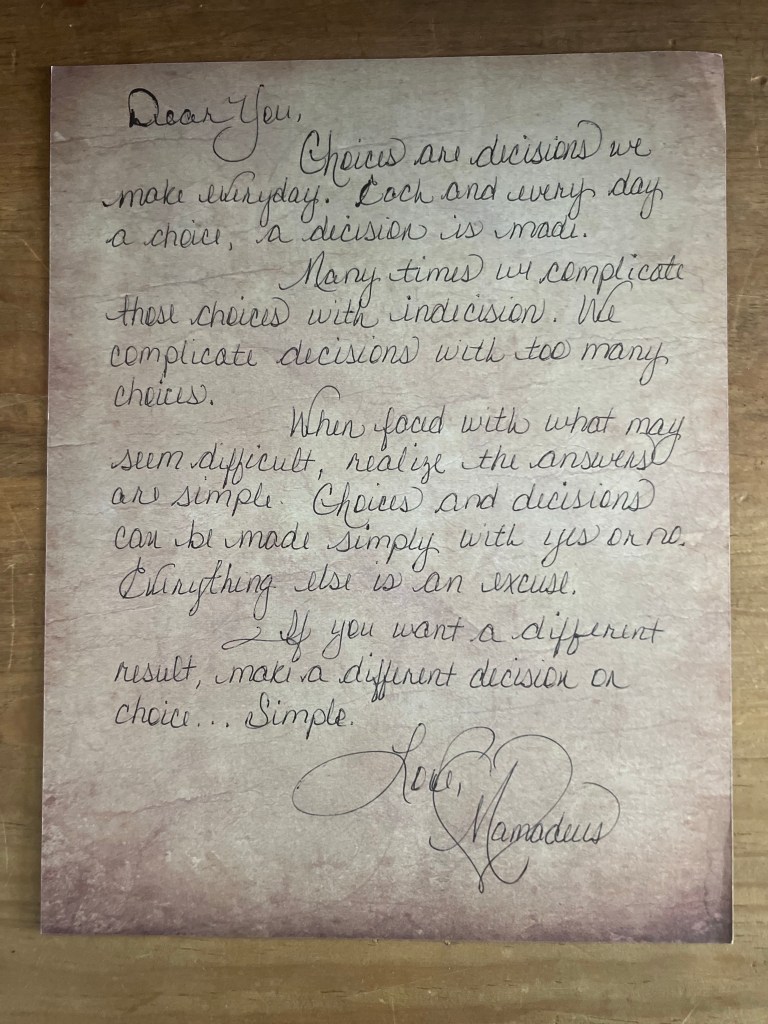 Dear You,
Choices are decisions we
make everyday. Each and every day
a choice, a decision is made.
Many times we complicate
those choices with indecision. We
complicate decisions with too many
choices.
When faced with what may
seem difficult, realize the answers
are simple. Choices and decisions
can be made simply with yes or no.
Everything else is an excuse.
If you want a different
result, make a different decision or
choice... Simple.
Love,
Mamadeus